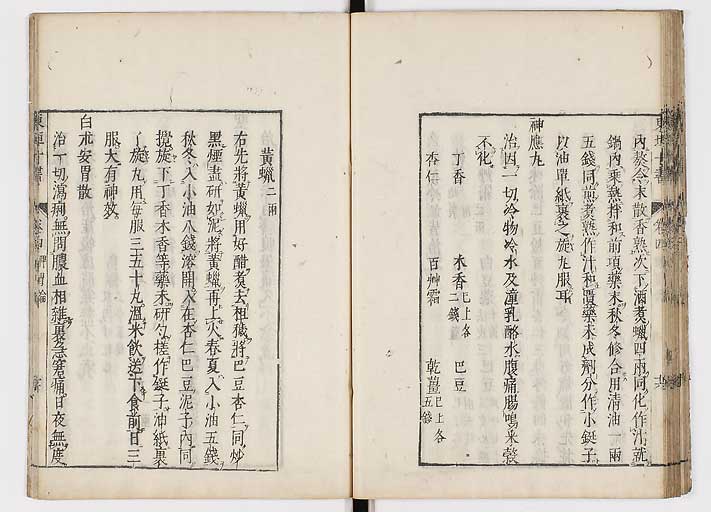 內熬令末散香熟次下酒煑蠟四兩同化作汁就
鍋內乘熱拌和前項藥末秋冬修合用清油一兩
五錢同煎煑熟作汁和匱藥末成劑分作小鋌子
以油單紙裹之旋丸服耳
神應丸
治因一切冷物冷水及潼乳酪水腹痛腸鳴米穀
不化
丁香 木香已上各二錢 巴豆
杏仁 百草霜 乾薑已上各五錢
黃蠟二兩
右先將黃蠟用好醋煑去粗穢將巴豆杏仁同炒
黑煙盡研如泥將黃蠟再上火春夏入小油五錢
秋冬入小油八錢溶開入在杏仁巴豆泥子內同
攪旋下丁香木香等藥末研勻搓作鋌子油紙裹
了旋丸用每服三五十丸溫米飲送下食前日三
服大有神效
白朮安胃散
治一切瀉痢無問膿血相雜裏急窘痛日夜無度